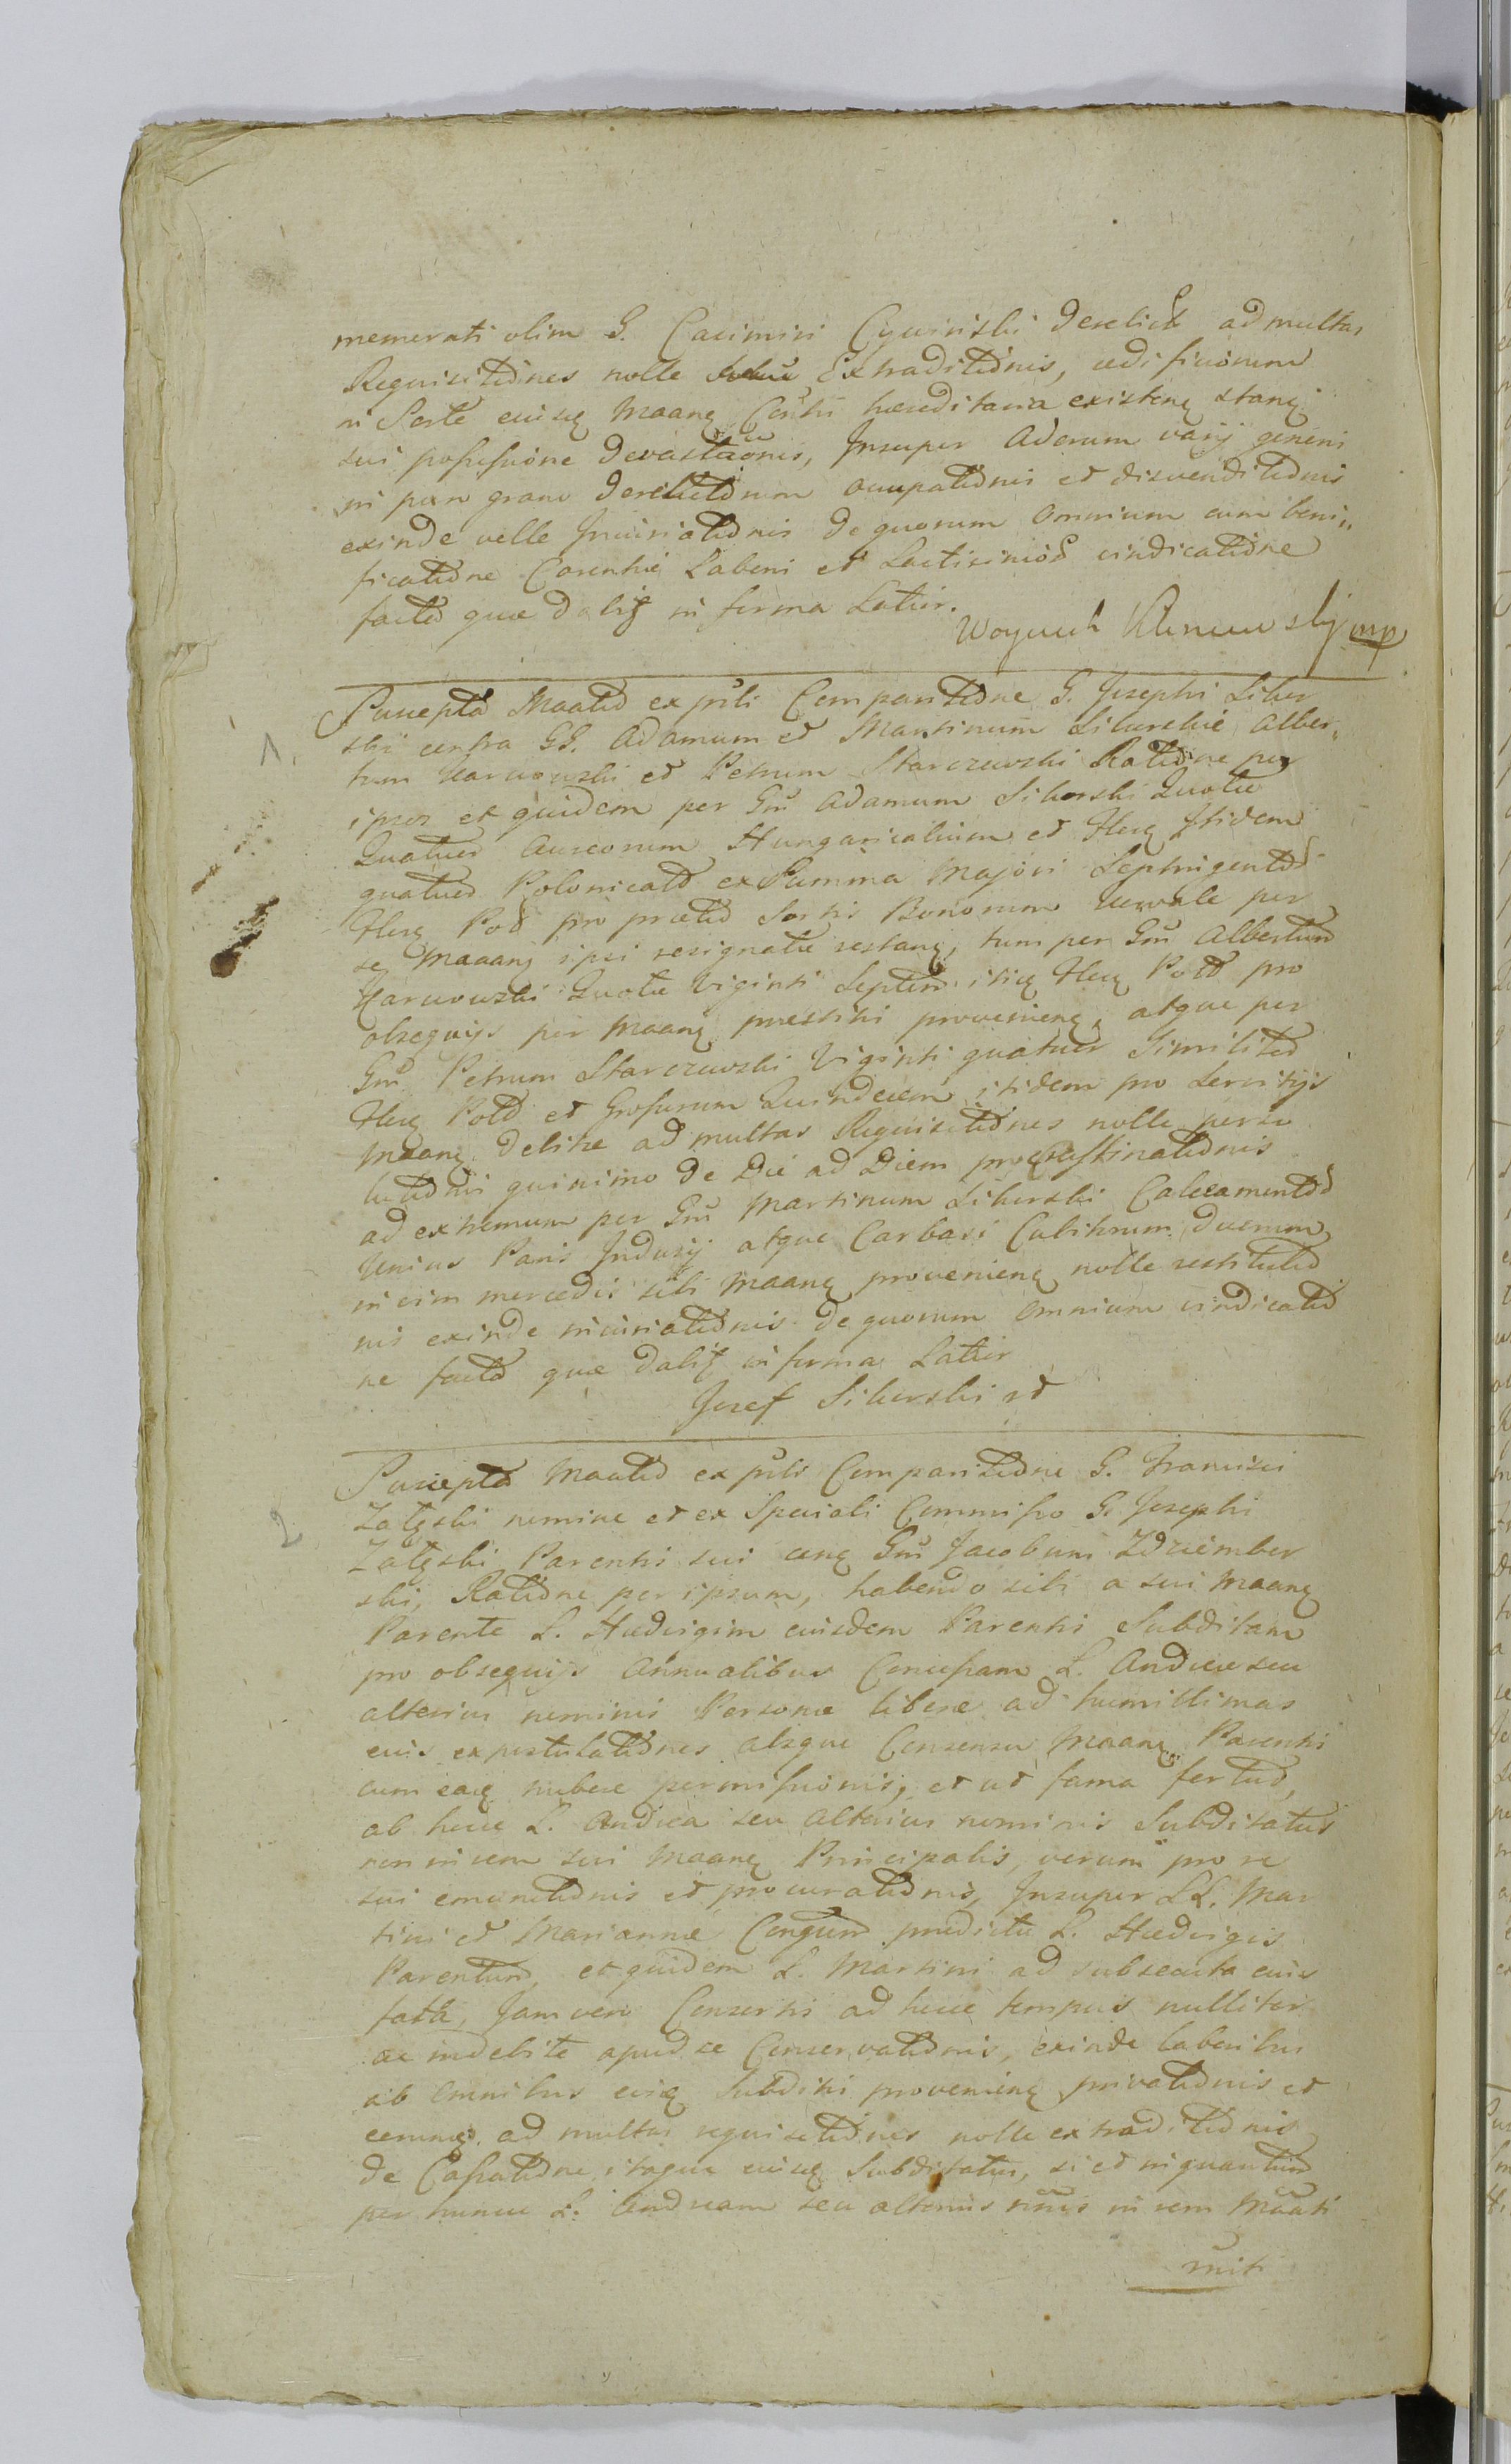 memorati olim G. Casimiri Cywinski derelict ad multas
Requisitiones nolle Extraditionis, ædificiorum
in Sorte eiusq Maanq hæreditaria existenq stanq
sui possessione Devastaõnis, Insuper Aderum varij generis
in grano derelictorum occupationis et disvenditionis
exinde velle Iniuriationis De quorum omnium cum beni„
ficatione Carentiæ Laboris et Lacticinior vindicatione
facta quæ dalis in forma Latior.
Woyciech mp
1.
Suscepta Maatio ex pñti Comparitione G. Josephi Sikor
ski contra GG. Adamum et Martinum Sikorskie, Alber„
tum Karwowski et Petrum Starczewski Ratione per
ipsos et quidem per Gm Adamum Sikorski Quotæ
Quatuor Aureorum Hungaricalium et Flenq Itidem
quatuor Polonicalo ex Summa Majori Septingentor
Flenq Pol pro prætio Sortis Bonorum per
se Maaanq ipsi resignatæ restanq, tum per Gm Albertum
Karwowski Quotæ Viginti Septem itiq Flenq Poll pro
obsequijs per Maanq præstitis provenienq, atque per
Gm Petrum Starczewski Viginti quatuor Similiter
Flenq Poll et Grossorum Quindecim itidem pro Servitijs
Maanq debitæ ad multas Requisitiones nolle perso
lutionis quinimo de Die ad Diem procrastinationis
ad extremum per Gm Martinum Sikorski Calceamentor
Unius Paris Indusij atque Carbasi Cubitorum duorum
in vim mercedis sibi Maanq provenienq nolle restitutio
nis exinde iniuriationis de quorum omnium vindicatio
ne facta quæ dalis in forma Latior
Jozef Sikorski
2
Suscepta Maatio ex pñti Comparitione G. Francisci
Załęski nomine et ex Speciali Commisso G. Josephi
Załęski Parentis sui cong Gm Jacobum Zdziember
ski, Ratione per ipsum, habendo sibi a sui Maanq
Parente L. Hedvigim eiusdem Parentis Subditam
pro obsequijs Annualibus Concessam L. Andreæ seu
alterius nominis Personæ liberæ ad humillimas
eius expostulationes absque Consensu Maanq Parentis
cum eaq nubere permissionis, et ut fama fertur,
ab hocce L. Andrea seu alterius nominis Subditatus
non in rem sui Maanq Principalis, verum pro re
sui emunitionis et procurationis, Insuper LL. Mar
tini et Mariannæ Congum prædictæ L. Hedvigis
Parentum, et quidem L. Martini ad subsecuta eius
fata, Jam vero Consortis ad hocce tempus nulliter
ac indebite apud se Conservationis, exinde laboribus
ab omnibus eisq Subditis provenienq privationis et
eorumq ad multas requisitiones nolle extraditionis
de Cassatione itaque eiusq Subditatus, si et in quantum
per huncce L. Andream seu alterius nñis in rem Maati
miti